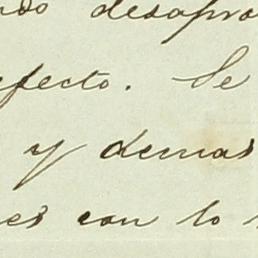 desapro
efecto. Se
y demas
es con lo